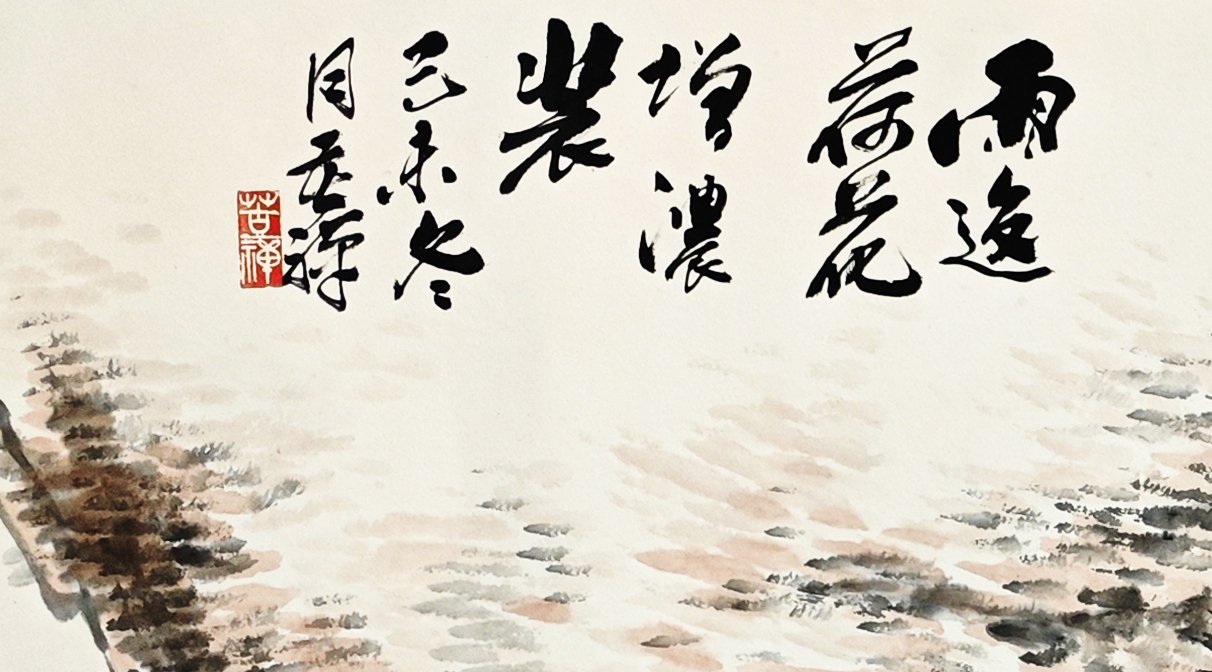 雨後
荷花
增濃
裝
己未冬
月苦禪
苦禪